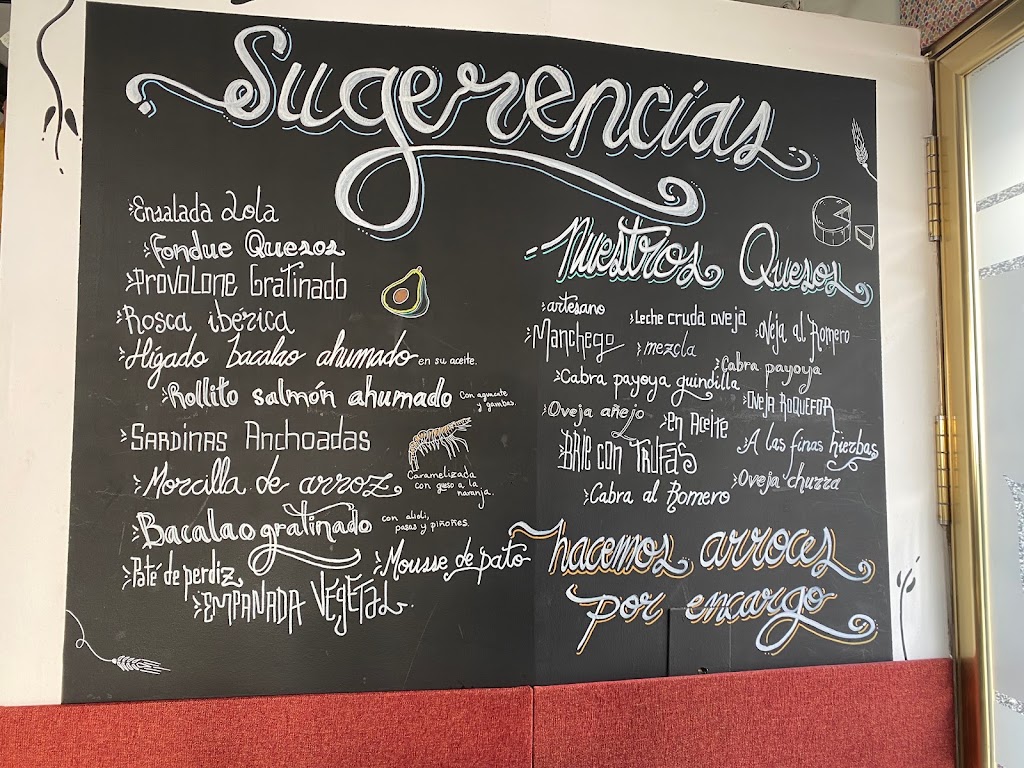 Sugerencias
Ensalada Lola
Fondue Quesos
Provolone Gratinado
Rosca ibérica
Hígado bacalao ahumado en su aceite.
Rollito salmón ahumado con aguacate
y gambas.
Sardinas Anchoadas
Morcilla de arroz
Caramelizada
con queso a la
naranja.
Bacalao gratinado con alioli,
pasas y piñones.
Paté de perdiz
Mousse de pato
Empanada Vegetal.
Nuestros Quesos
artesano
Leche cruda oveja
Oveja al Romero
Manchego
mezcla
Cabra payoya
Cabra payoya guindilla
Oveja Roquefor
Oveja añejo
en Aceite
A las finas hierbas
Brie con Trufas
Oveja churra
Cabra al Romero
hacemos arroces
por encargo